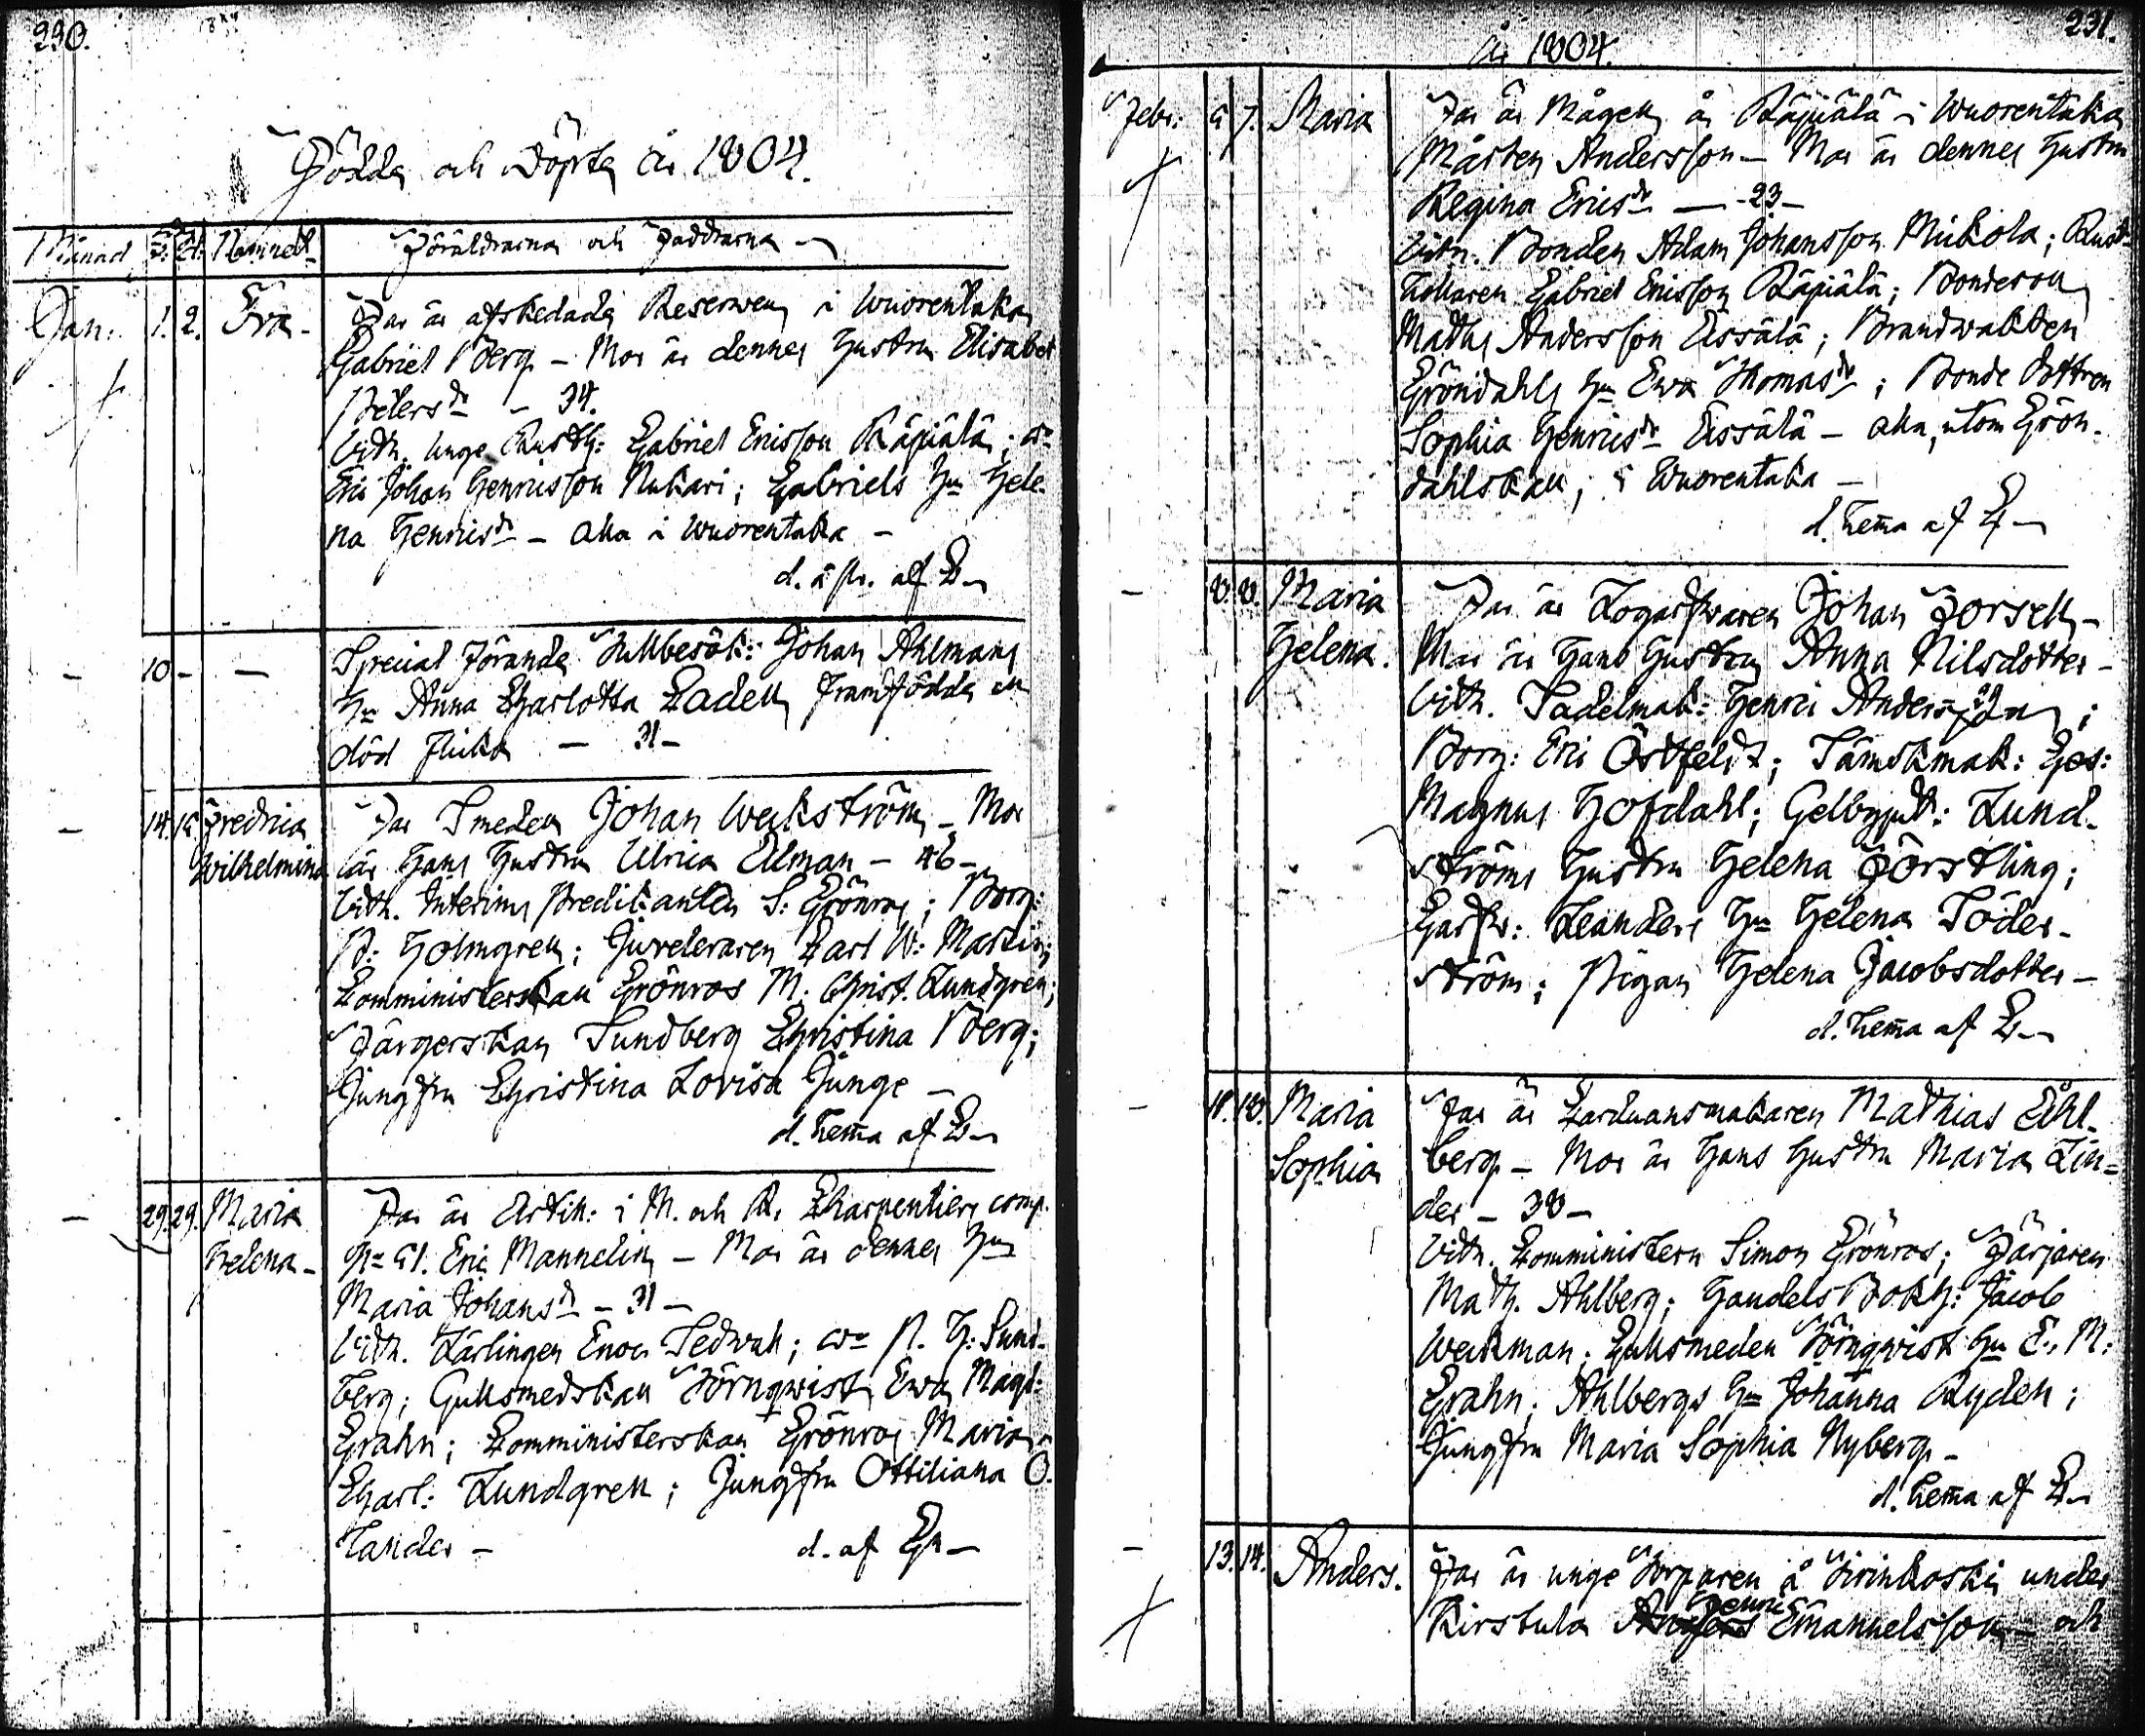 230.
Födda och Döpta År 1804.
Månad F. D. Namnet Föräldrarna och Faddrarna
Jan. 1. 2. Eva - Far är afskedade Reserwen i Wuorentaka
Gabriel Berg - Mor är dennes Hustru Elisabet
Petersdr - 34.
Vittn. unge Rusth: Gabriel Ericsson Räpiälä;
Eric Johan Henricsson Nukari; Gabriels Hu Hele
na Henricsdr - alla i Wuorentaka -
d. af
10 - - Special Johan Ahlmans
Hu Anna Charlotta framfödde en
död flicka - 31 -
14. 15. Fredrica Far Smeden Johan Weckström - Mor
Wilhelmina är Hans Hustru Ulrica Elman - 46 -
Vittn. Interims Predikanten S: Grönros; Borg:
P: Holmgren; Juveleraren Carl W: Martin;
Comministerskan Grönros M. Christ. Lundgren;
Färgerskan Sundberg Christina Berg;
Jungfru Christina Lovisa Junge -
d. hema af
29. 29. Maria Far är Artill: i M. och R. Charpentiers comp.
Helena - No 51. Eric Mannelin - Mor är dennes Hu
Maria Johansdr - 31 -
Vittn. Lärlingen Enoc P. H: Sund-
berg; Gullsmedskan Törnqwist Ewa Magd:
Grahn; Comministerskan Grönros Maria
Charl: Lundgren; Jungfru Ottiliana O.
Tander - d. af
231.
År 1804.
Febr: 5 7. Maria Far är Mågen å Räpiälä i Wuorentaka
Mårten Andersson - Mor är dennes Hustru
Regina Ericsdr - 23 -
Vittn. Bonden Adam Johansson Mickola; Rust-
hållaren Gabriel Ericsson Räpiälä; Bondeson
Maths Andersson Eissälä; Brandwakten
Gröndahls Hu Ewa Thomasdr; Bonde dottren
Sophia Henricsdr Eissälä - alla, utom Grön-
dahlskan, i Wuorentaka -
d. hema af
8. 8. Maria Far är Logarfwaren Johan Forsell -
Helena. Mor är Hans Hustru Anna Nilsdotter -
Vittn. Sadelmak: Henric Andersson;
Borg: Eric Östfeldt; Sämskmak: Ges:
Magnus Hofdahl; Gelbgjut: Lund-
ströms Hustru Helena Förstling;
Garfw: Leanders Hu Helena Söder-
ström; Pigan Helena Jacobsdotter -
d. hema af
18. Maria Far är Carduansmakaren Mathias Ahl-
Sophia berg - Mor är Hans Hustru Maria Lin-
der - 38 -
Vittn. Comministern Simon Grönros; Färjaren
Math. Ahlberg; Handels Bokh: Jacob
Weckman; Gullsmeden Törnqwist Hu E. M:
Grahn; Ahlbergs Hu Johanna Ryden;
Jungfru Maria Sophia Nyberg -
d. hema af
13. 14. Anders. Far är unge Torparen å Sirinkoski under
Kirstula Henric Emanuelsson - och